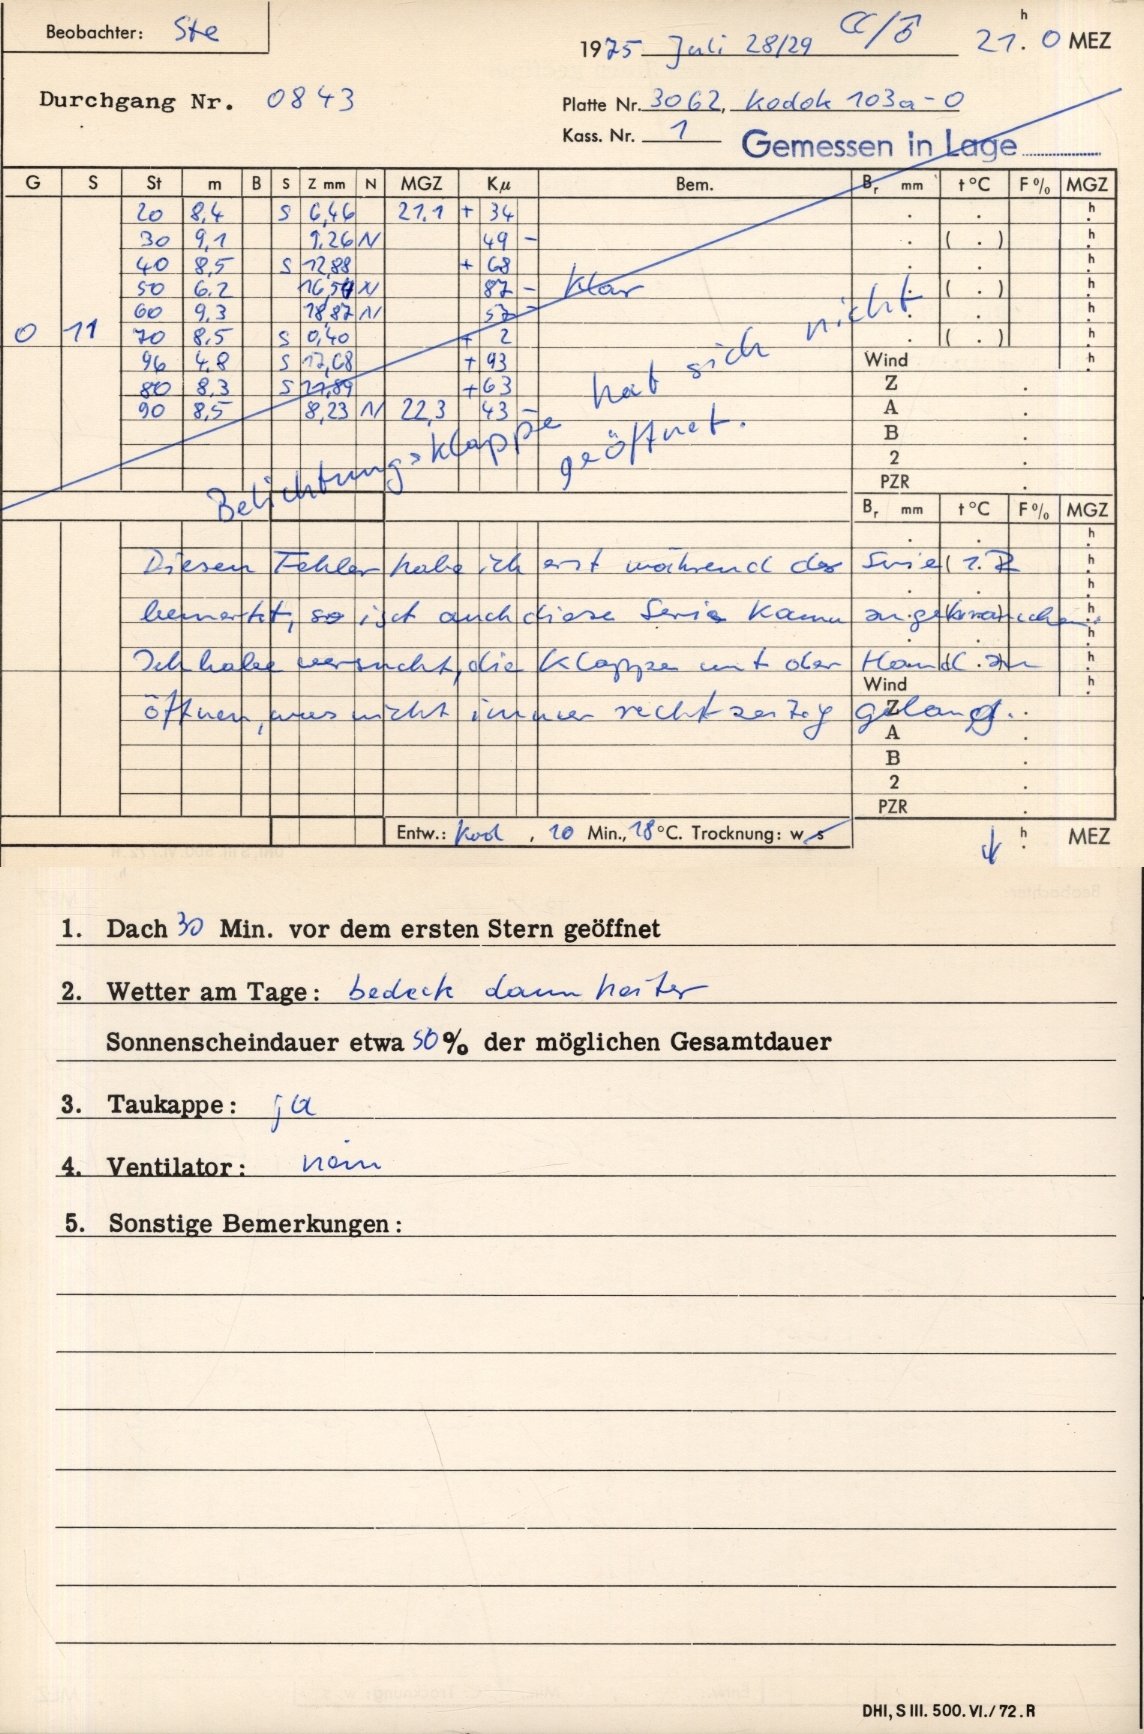 Beobachter: Ste
1975 Juli 28/29 21.0 h MEZ
Durchgang Nr. 0843
Platte Nr. 3062, Kodak 103a-O
Kass. Nr. 1
Gemessen in Lage
G S St m B S Z mm N MGZ Kμ Bem. Br mm t °C F % MGZ
20 8,4 S 6,46 21,1 + 34 . . h
30 9,1 9,26 N 49 - . ( . ) h
40 8,5 S 12,88 + 68 . . h
50 6.2 16,54 N 87 - klar . ( . ) h
60 9,3 18,87 N 57 - . . h
0 11 70 8,5 S 0,40 + 2 . ( . ) h
96 4.8 S 17,68 + 93 Wind h
80 8,3 S 21,89 + 63 Z .
90 8,5 8,23 N 22,3 43 - A .
B .
2 .
PZR .
Belichtungsklappe hat sich nicht
geöffnet.
Br mm t °C F % MGZ
Diesen Fehler habe ich erst während der Serie 1.Z
bemerkt, so ist auch diese Serie kaum zu gebrauchen.
Ich habe versucht, die Klappe mit der Hand zu
Wind
öffnen, was nicht immer rechtzeitig gelang.
Z .
A .
B .
2 .
PZR .
Entw.: Kod , 10 Min., 18 °C. Trocknung: w s ↓ h MEZ
1. Dach 30 Min. vor dem ersten Stern geöffnet
2. Wetter am Tage: bedeck dann heiter
Sonnenscheindauer etwa 50 % der möglichen Gesamtdauer
3. Taukappe: ja
4. Ventilator: nein
5. Sonstige Bemerkungen:
DHI, S III. 500. VI./72. R